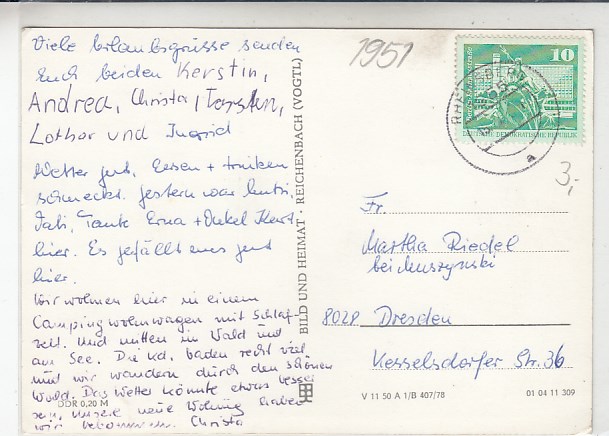 Viele Urlaubsgrüsse senden
Euch beiden Kerstin,
Andrea, Christa, Torsten,
Lothar und Ingrid
Wetter gut, Essen + trinken
schmeckt. gestern war Mutti,
Vati, Tante Erna + Onkel Horst
hier. Es gefällt uns gut
hier.
Wir wohnen hier in einem
Campingwohnwagen mit Schlaf-
zelt. Und mitten in Wald und
am See. Die Kd. baden recht viel
und wir wandern durch den schönen
Wald. Das Wetter könnte etwas besser
sein, unsere neue Wohnung haben
wir bekommen. Christa
DDR 0,20 M
BILD UND HEIMAT · REICHENBACH (VOGTL)
1951
10
DEUTSCHE DEMOKRATISCHE REPUBLIK
a
3,-
Fr.
Martha Riedel
bei Muszynski
8028 Dresden
Kesselsdorfer Str. 36
V 11 50 A 1/B 407/78
01 04 11 309